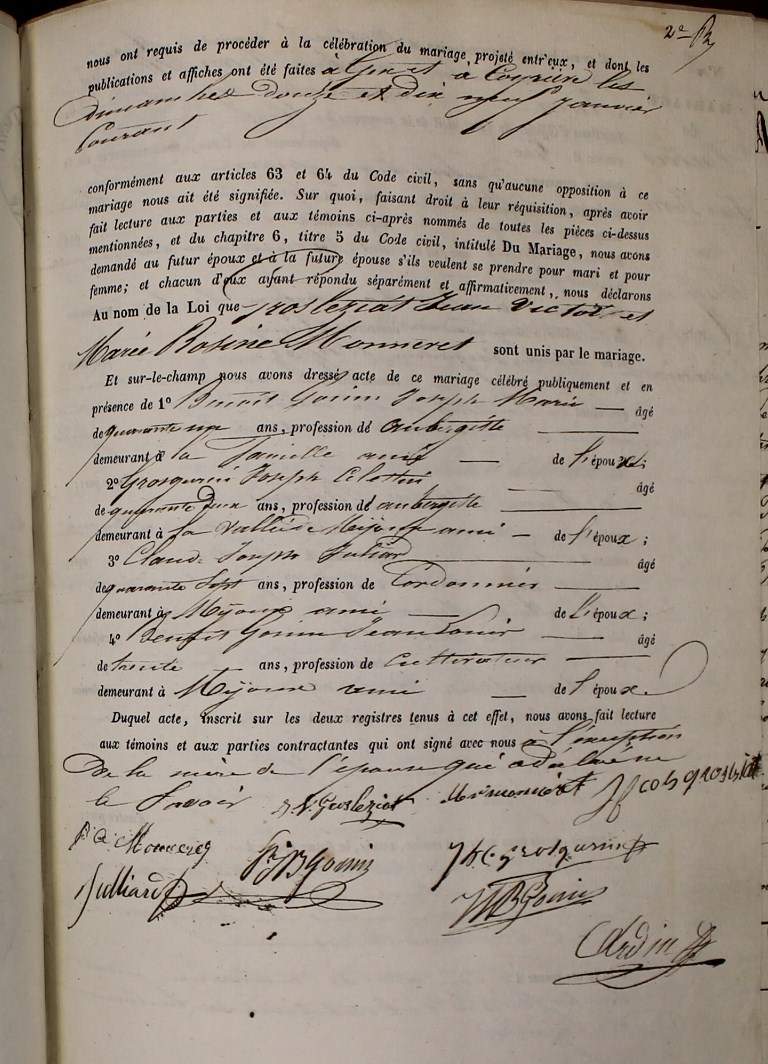 2e
nous ont requis de procéder à la célébration du mariage projeté entr'eux, et dont les
publications et affiches ont été faites à Gex et à les
dimanches douze et dix neuf janvier
Courant
conformément aux articles 63 et 64 du Code civil, sans qu'aucune opposition à ce
mariage nous ait été signifiée. Sur quoi, faisant droit à leur réquisition, après avoir
fait lecture aux parties et aux témoins ci-après nommés de toutes les pièces ci-dessus
mentionnées, et du chapitre 6, titre 5 du Code civil, intitulé Du Mariage, nous avons
demandé au futur époux et à la future épouse s'ils veulent se prendre pour mari et pour
femme; et chacun d'eux ayant répondu séparément et affirmativement, nous déclarons
Au nom de la Loi que grosleziat Jean Victor et
Marie Rosine Monneret sont unis par le mariage.
Et sur-le-champ nous avons dressé acte de ce mariage célébré publiquement et en
présence de 1° Benoit Gonin Joseph Marie — âgé
de quarante un ans, profession de aubergiste —
demeurant à la ami — de l'époux;
2° Grosgurin Joseph Celestin — âgé
de quarante deux ans, profession d'aubergiste —
demeurant à la Vallée de Mijoux ami — de l'époux;
3° Claude Joseph Julliard — âgé
de quarante sept ans, profession de Cordonnier —
demeurant à Mijoux ami — de l'époux;
4° Benoit Gonin Jean Louis — âgé
de trente ans, profession de Cultivateur —
demeurant à Mijoux ami — de l'époux.
Duquel acte, inscrit sur les deux registres tenus à cet effet, nous avons fait lecture
aux témoins et aux parties contractantes qui ont signé avec nous à l'exception
De la mère de l'épouse qui a déclaré ne
le Savoir J. V. Grosleziat Mr monneret groslziat
Monneret JBGonin JC grosgurin
Julliard JLBGonin